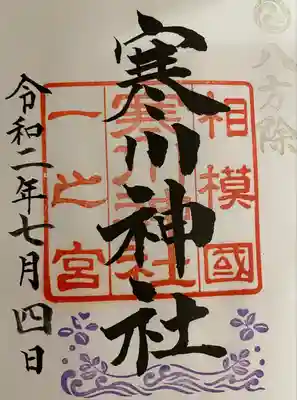 八方除
相模國
寒川神社
一之宮
寒川神社
令和二年七月四日